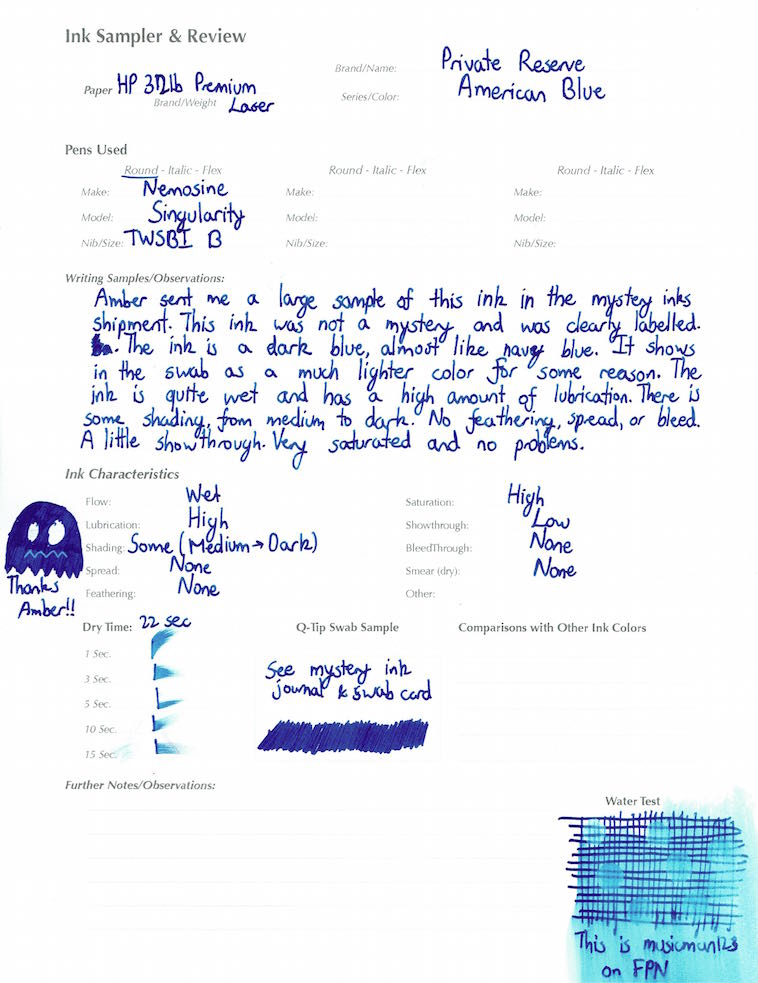 Ink Sampler & Review
Brand/Name: Private Reserve
Paper HP 32lb Premium
Brand/Weight Laser
Series/Color: American Blue
Pens Used
Round - Italic - Flex Round - Italic - Flex Round - Italic - Flex
Make: Nemosine Make: Make:
Model: Singularity Model: Model:
Nib/Size: TWSBI B Nib/Size: Nib/Size:
Writing Samples/Observations:
Amber sent me a large sample of this ink in the mystery inks
shipment. This ink was not a mystery and was clearly labelled.
. The ink is a dark blue, almost like navy blue. It shows
in the swab as a much lighter color for some reason. The
ink is quite wet and has a high amount of lubrication. There is
some shading, from medium to dark. No feathering, spread, or bleed.
A little showthrough. Very saturated and no problems.
Ink Characteristics
Flow: Wet Saturation: High
Lubrication: High Showthrough: Low
Shading: Some (Medium → Dark) BleedThrough: None
Spread: None Smear (dry): None
Feathering: None Other:
Thanks
Amber!!
Dry Time: 22 sec Q-Tip Swab Sample Comparisons with Other Ink Colors
1 Sec.
3 Sec.
5 Sec.
10 Sec.
15 Sec.
See mystery ink
journal & swab card
Further Notes/Observations:
Water Test
This is musicman123
on FPN